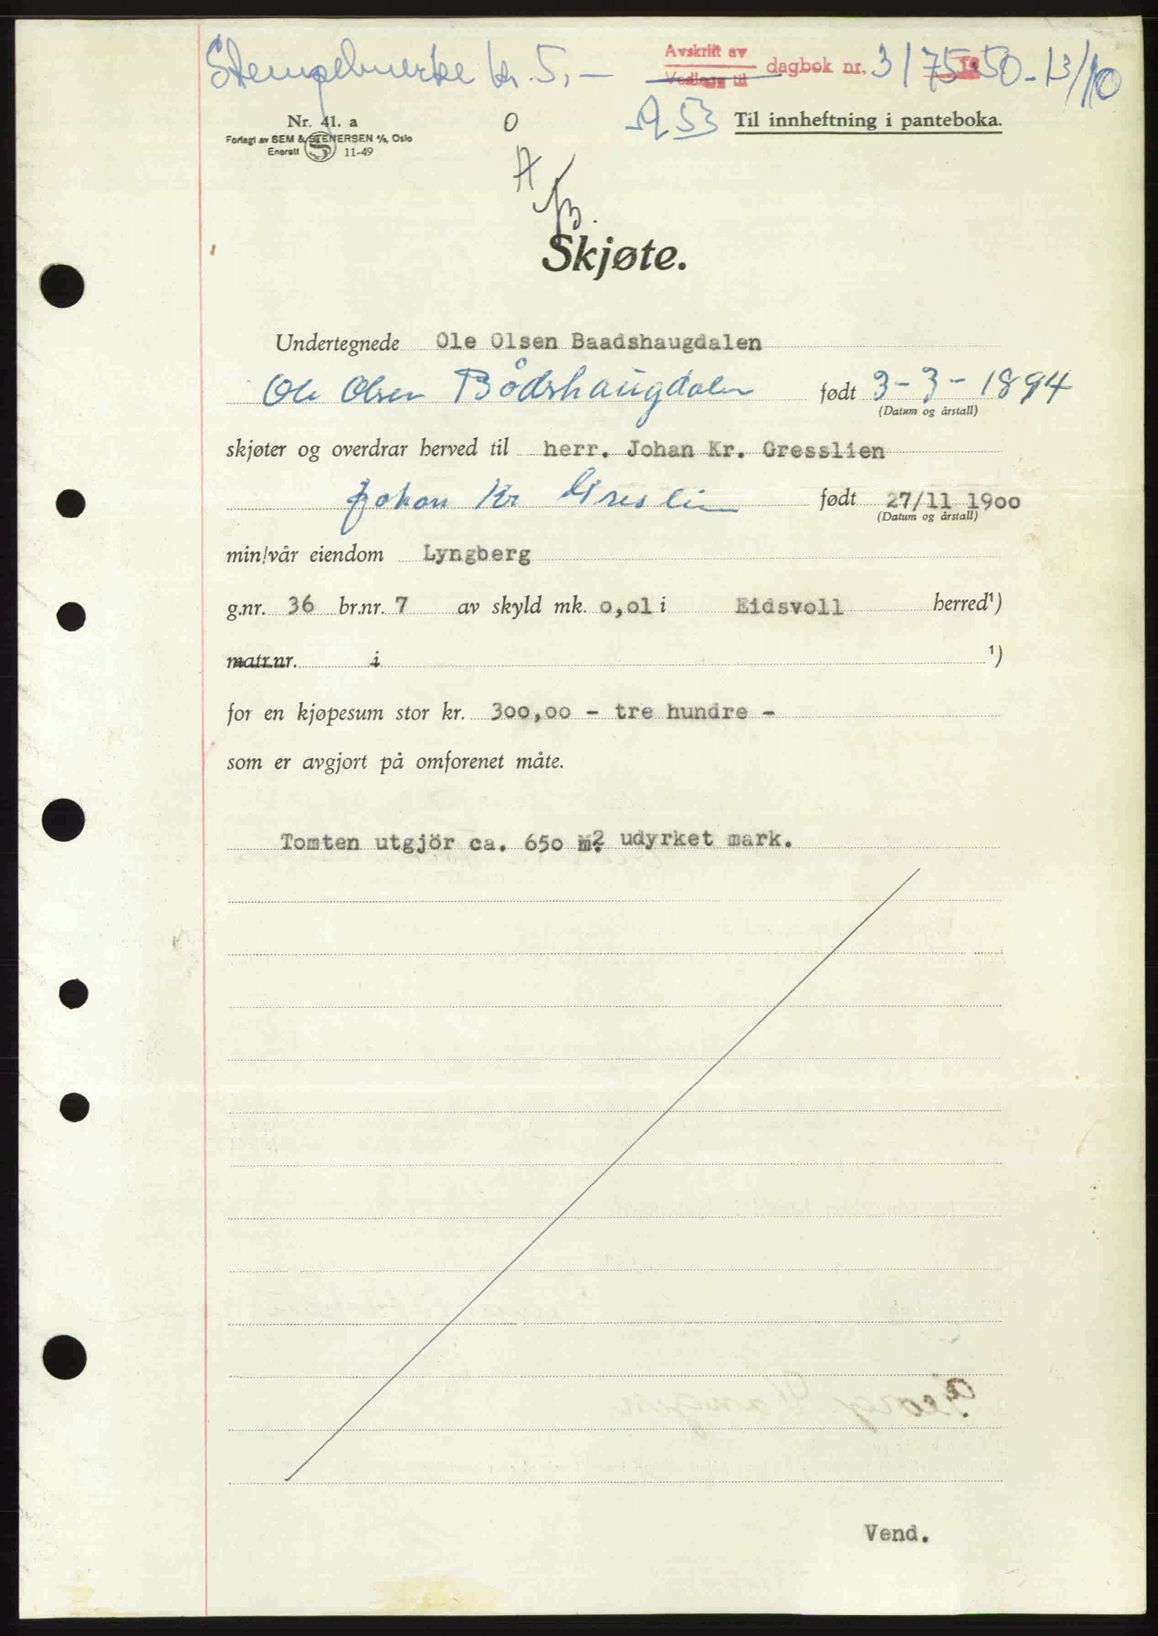 Stempelmerke kr. 5,-
Avskrift av
Vedlegg til
dagbok nr. 3175 - 50 - 13/10
953
Til innheftning i panteboka.
Nr. 41. a
Forlagt av SEM & STENERSEN A/S, Oslo
Enerett S 11-49
O
A
Skjøte.
Undertegnede Ole Olsen Baadshaugdalen
Ole Olsen Bådshaugdalen født 3-3-1894
(Datum og årstall)
skjøter og overdrar herved til herr. Johan Kr. Gresslien
Johan Kr Greslien født 27/11 1900
(Datum og årstall)
min/vår eiendom Lyngberg
g.nr. 36 br.nr. 7 av skyld mk. 0,01 i Eidsvoll herred¹)
matr.nr. i ¹)
for en kjøpesum stor kr. 300,00 - tre hundre -
som er avgjort på omforenet måte.
Tomten utgjör ca. 650 m2 udyrket mark.
Vend.